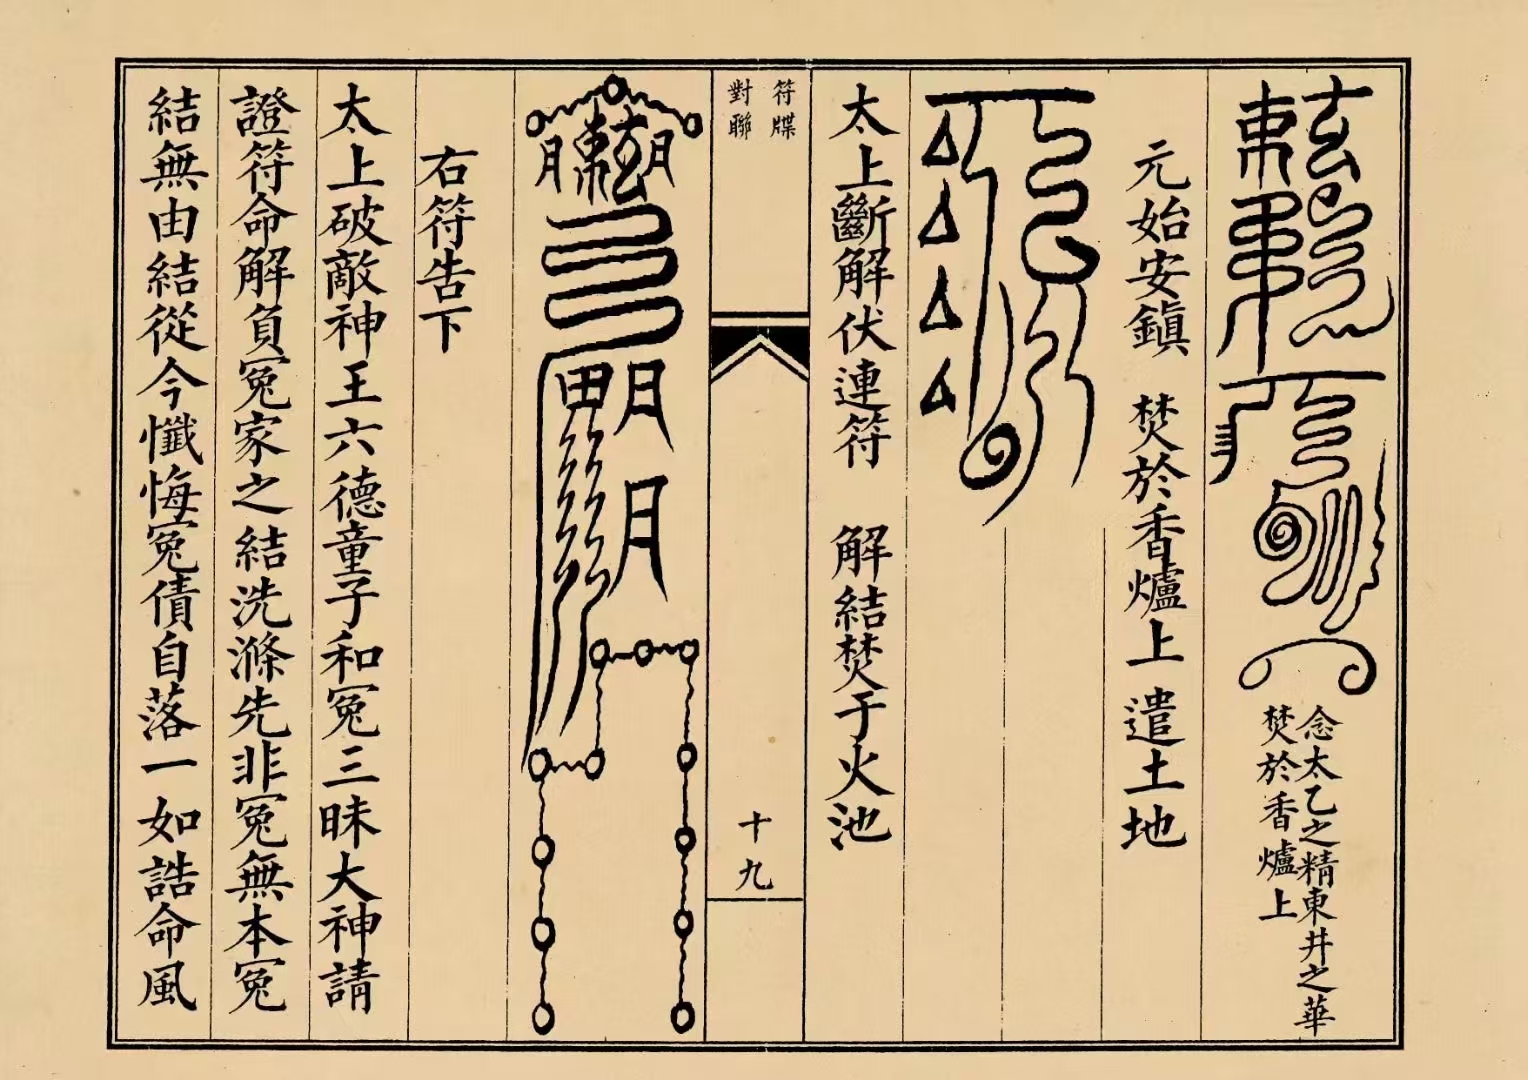 念太乙之精東井之華
焚於香爐上
元始安鎮 焚於香爐上 遣土地
太上斷解伏連符 解結焚于火池
符牒
對聯
十九
右符告下
太上破敵神王六德童子和冤三昧大神請
證符命解負冤家之結洗滌先非冤無本冤
結無由結從今懺悔冤債自落一如誥命風